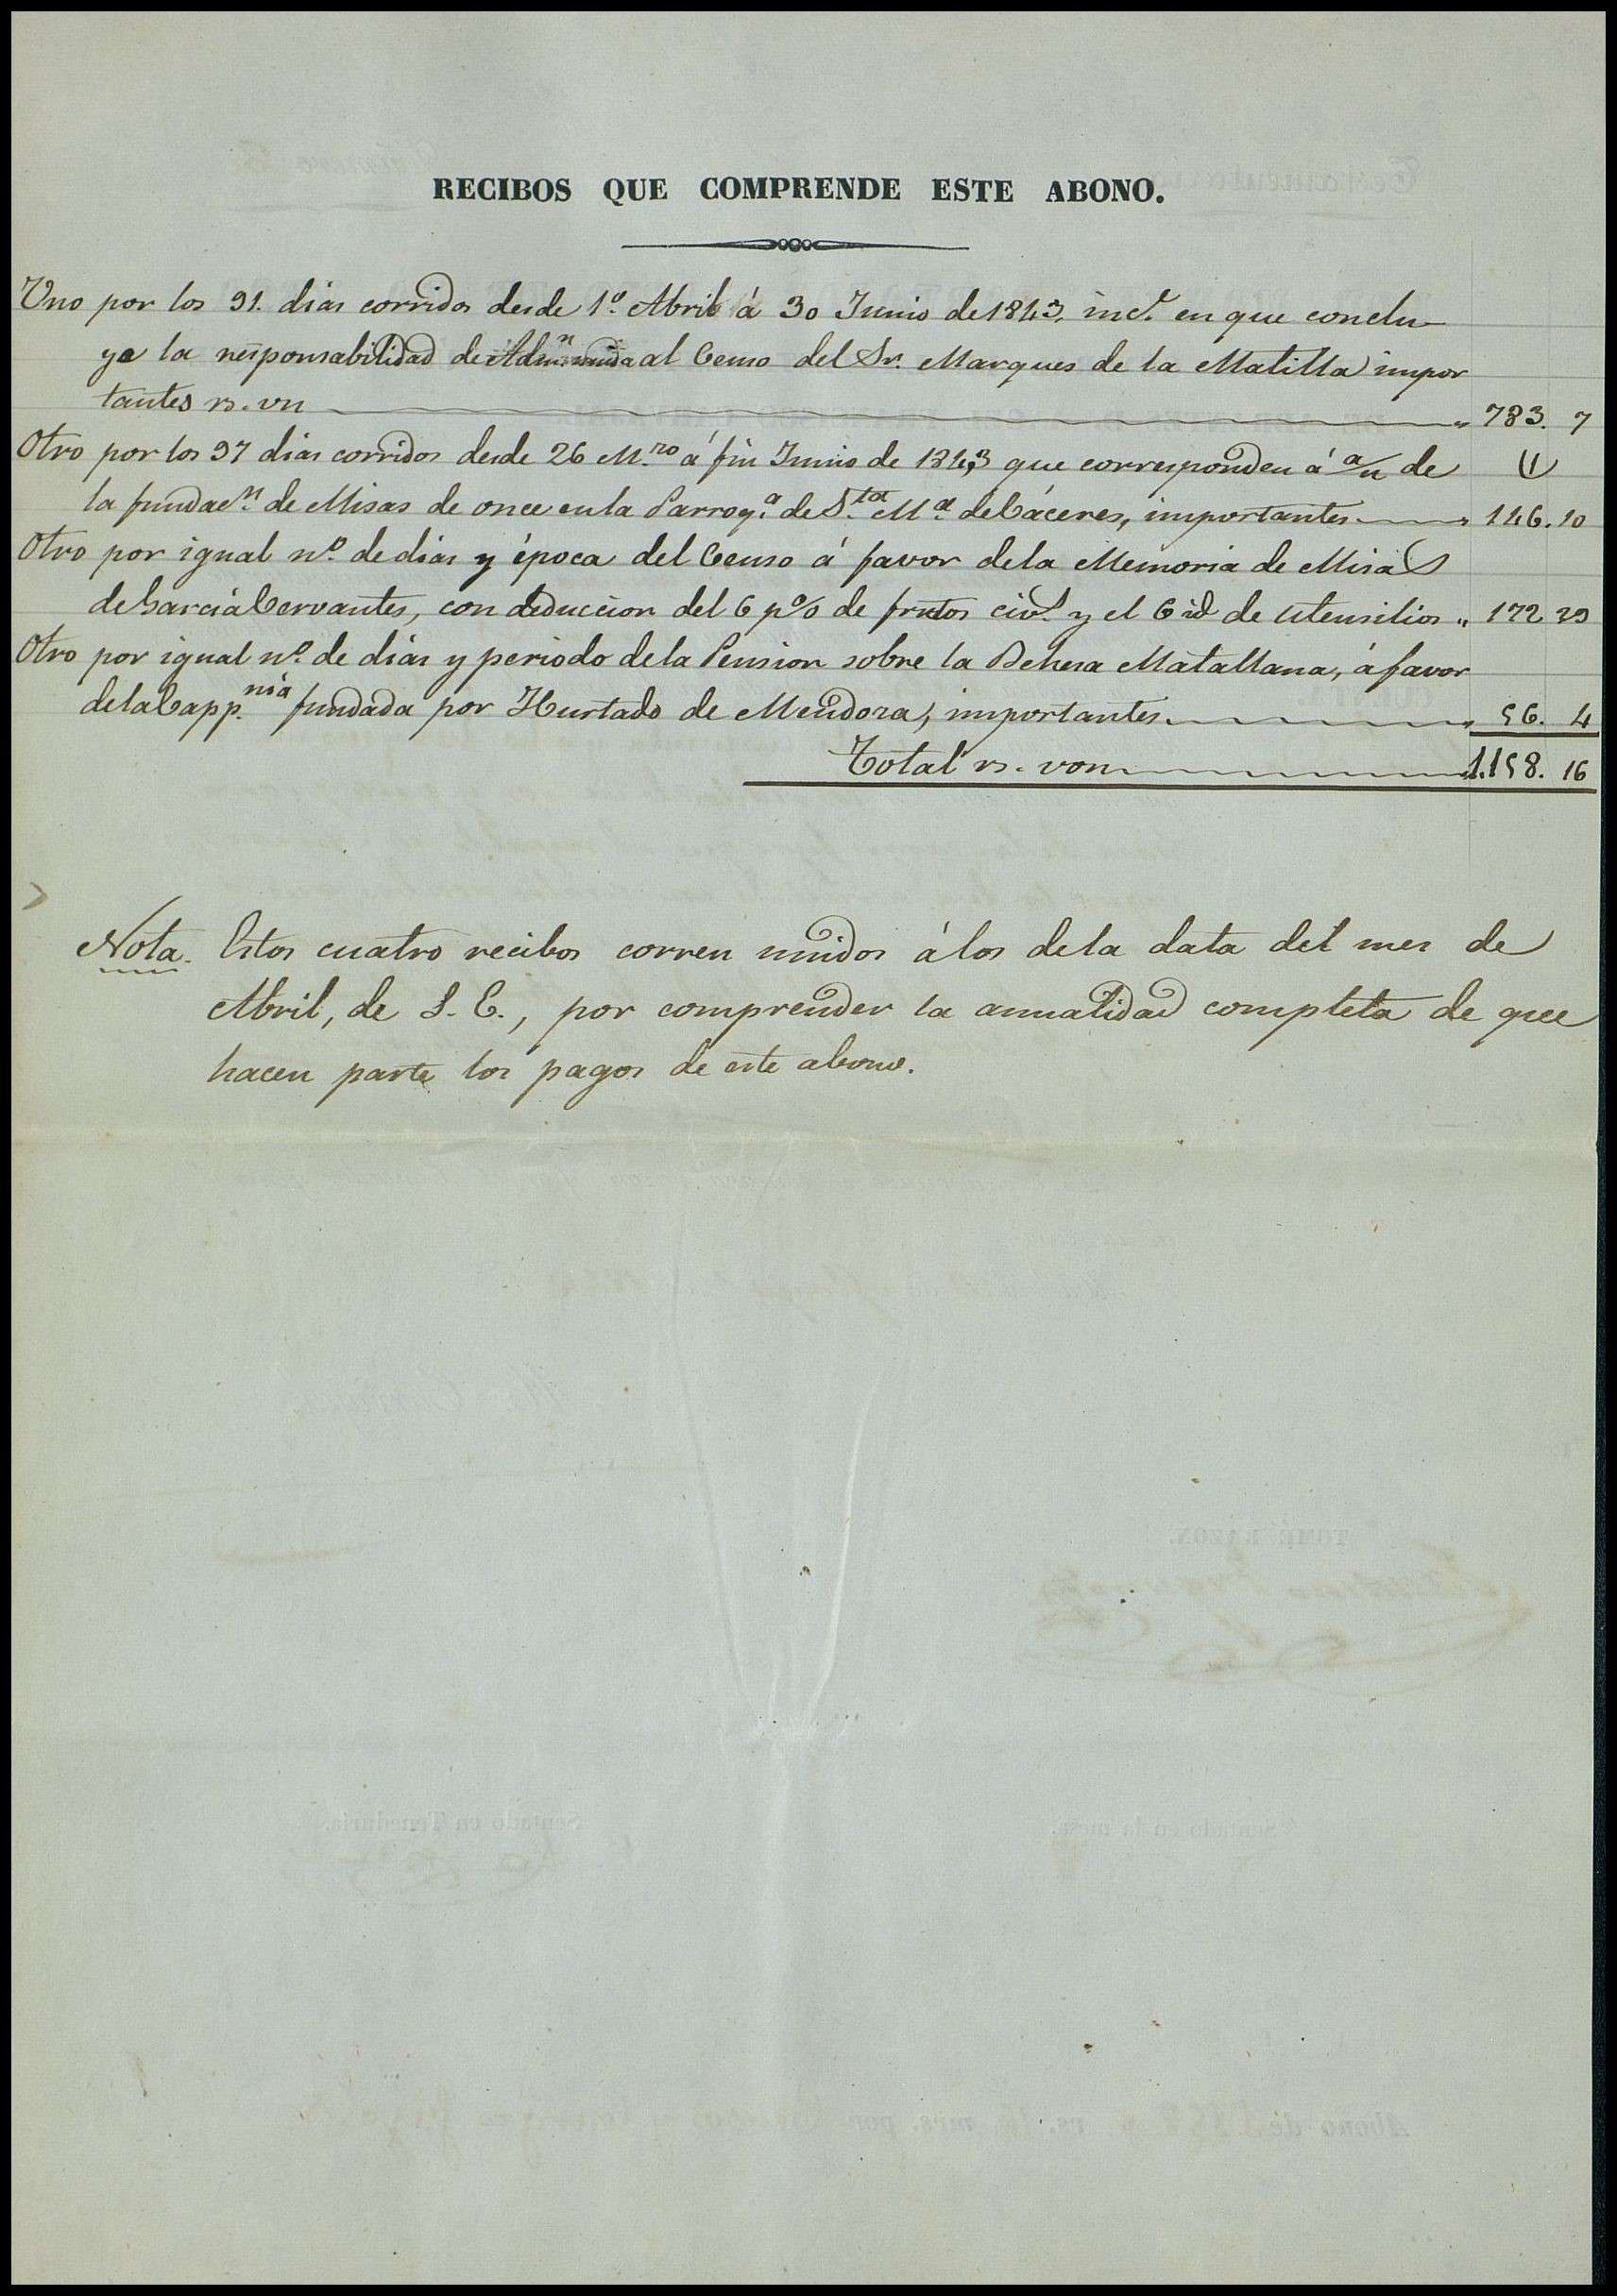 RECIBOS QUE COMPRENDE ESTE ABONO.
Uno por los 91. dias corridos desde 1º. Abril á 30 Junio de 1843, incl. en que conclu-
ye la responsabilidad de Admn. al Censo del Sr. Marques de la Matilla impor
tantes rs. vn " 783. 7
Otro por los 97 dias corridos desde 26 M.ro á fin Junio de 1843 que corresponden á a/n de
la fundacn. de Misas de once en la Parroq.a de S.ta M.a de Cáceres, importantes " 146. 10
Otro por igual nº. de dias y época del Censo á favor de la Memoria de Misas
de Garcia Cervantes, con deduccion del 6 p% de frutos civs. y el 6 id de utensilios " 172 29
Otro por igual nº. de dias y periodo de la Pension sobre la Dehesa Matallana, á favor
de la Capp.nia fundada por Hurtado de Mendoza, importantes " 56. 4
Total rs. von " 1.158. 16
Nota. Estos cuatro recibos corren unidos á los de la data del mes de
Abril, de S. E., por comprender la anualidad completa de que
hacen parte los pagos de este abono.